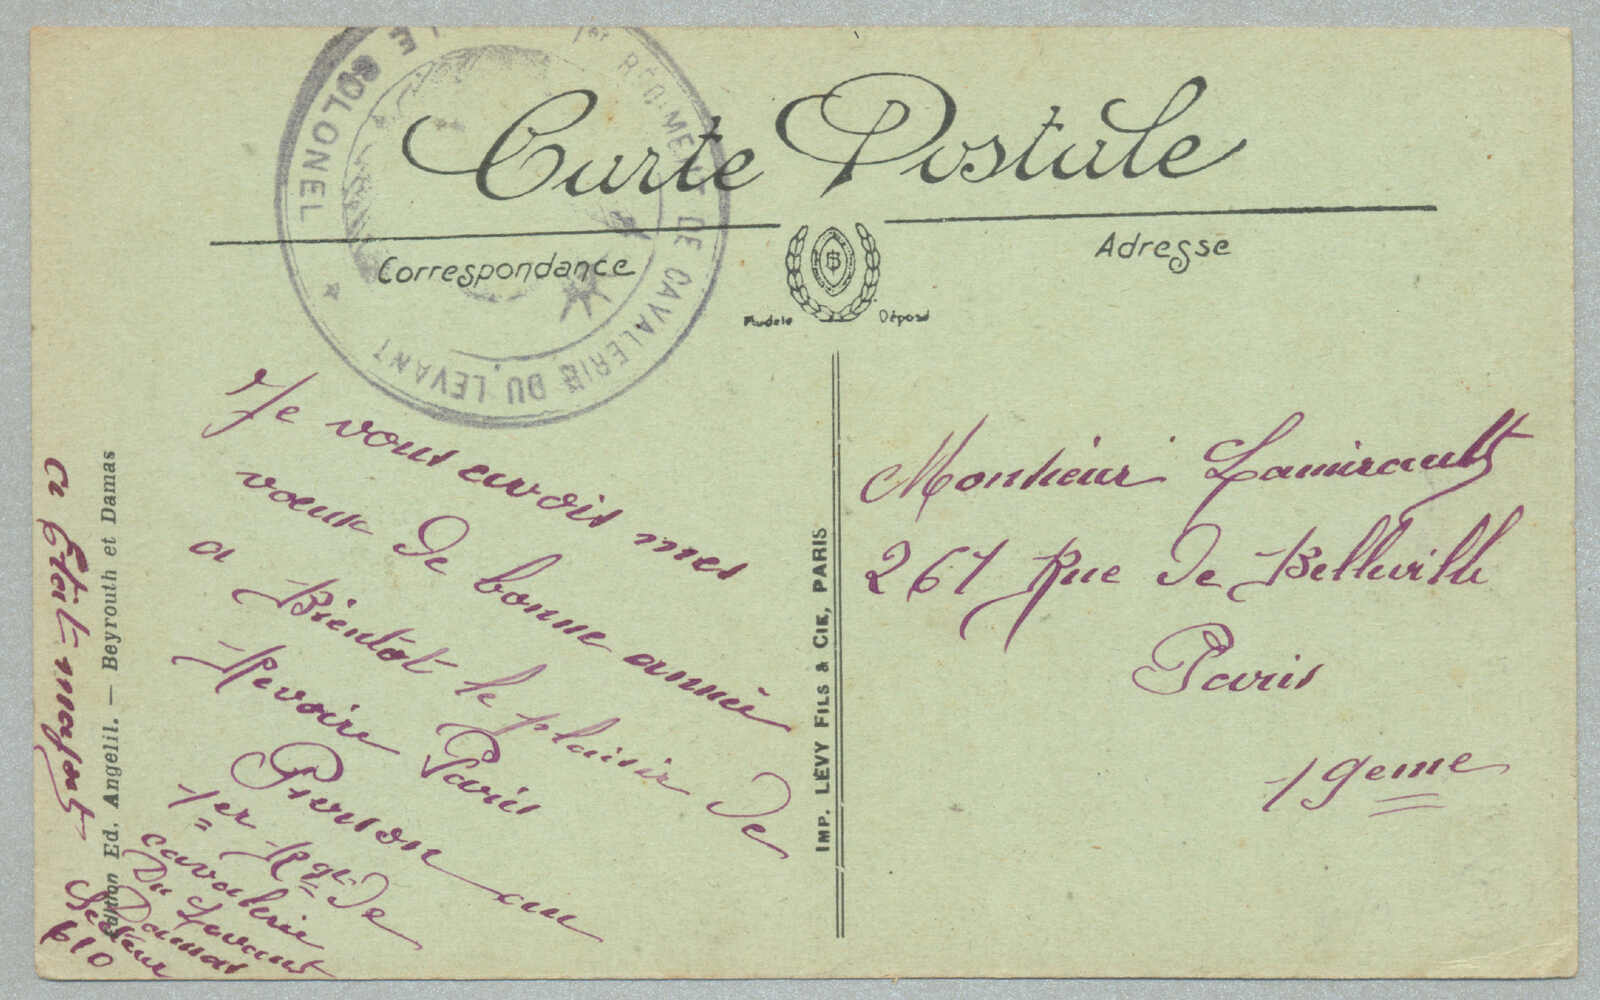 1er RÉGIMENT DE CAVALERIE DU LEVANT
LE COLONEL
Carte Postale
Correspondance
Adresse
Modèle Déposé
Je vous envois mes
vœux de bonne année
a Bientot le plaisir de
Revoire Paris
Pierson au
1er Rgt de
cavalerie
Du Levant
Damas
Secteur
610
a Etat-major
Edition Ed. Angelil. — Beyrouth et Damas
IMP. LEVY FILS & CIE, PARIS
Monsieur Lamirault
267 Rue de Belleville
Paris
19eme